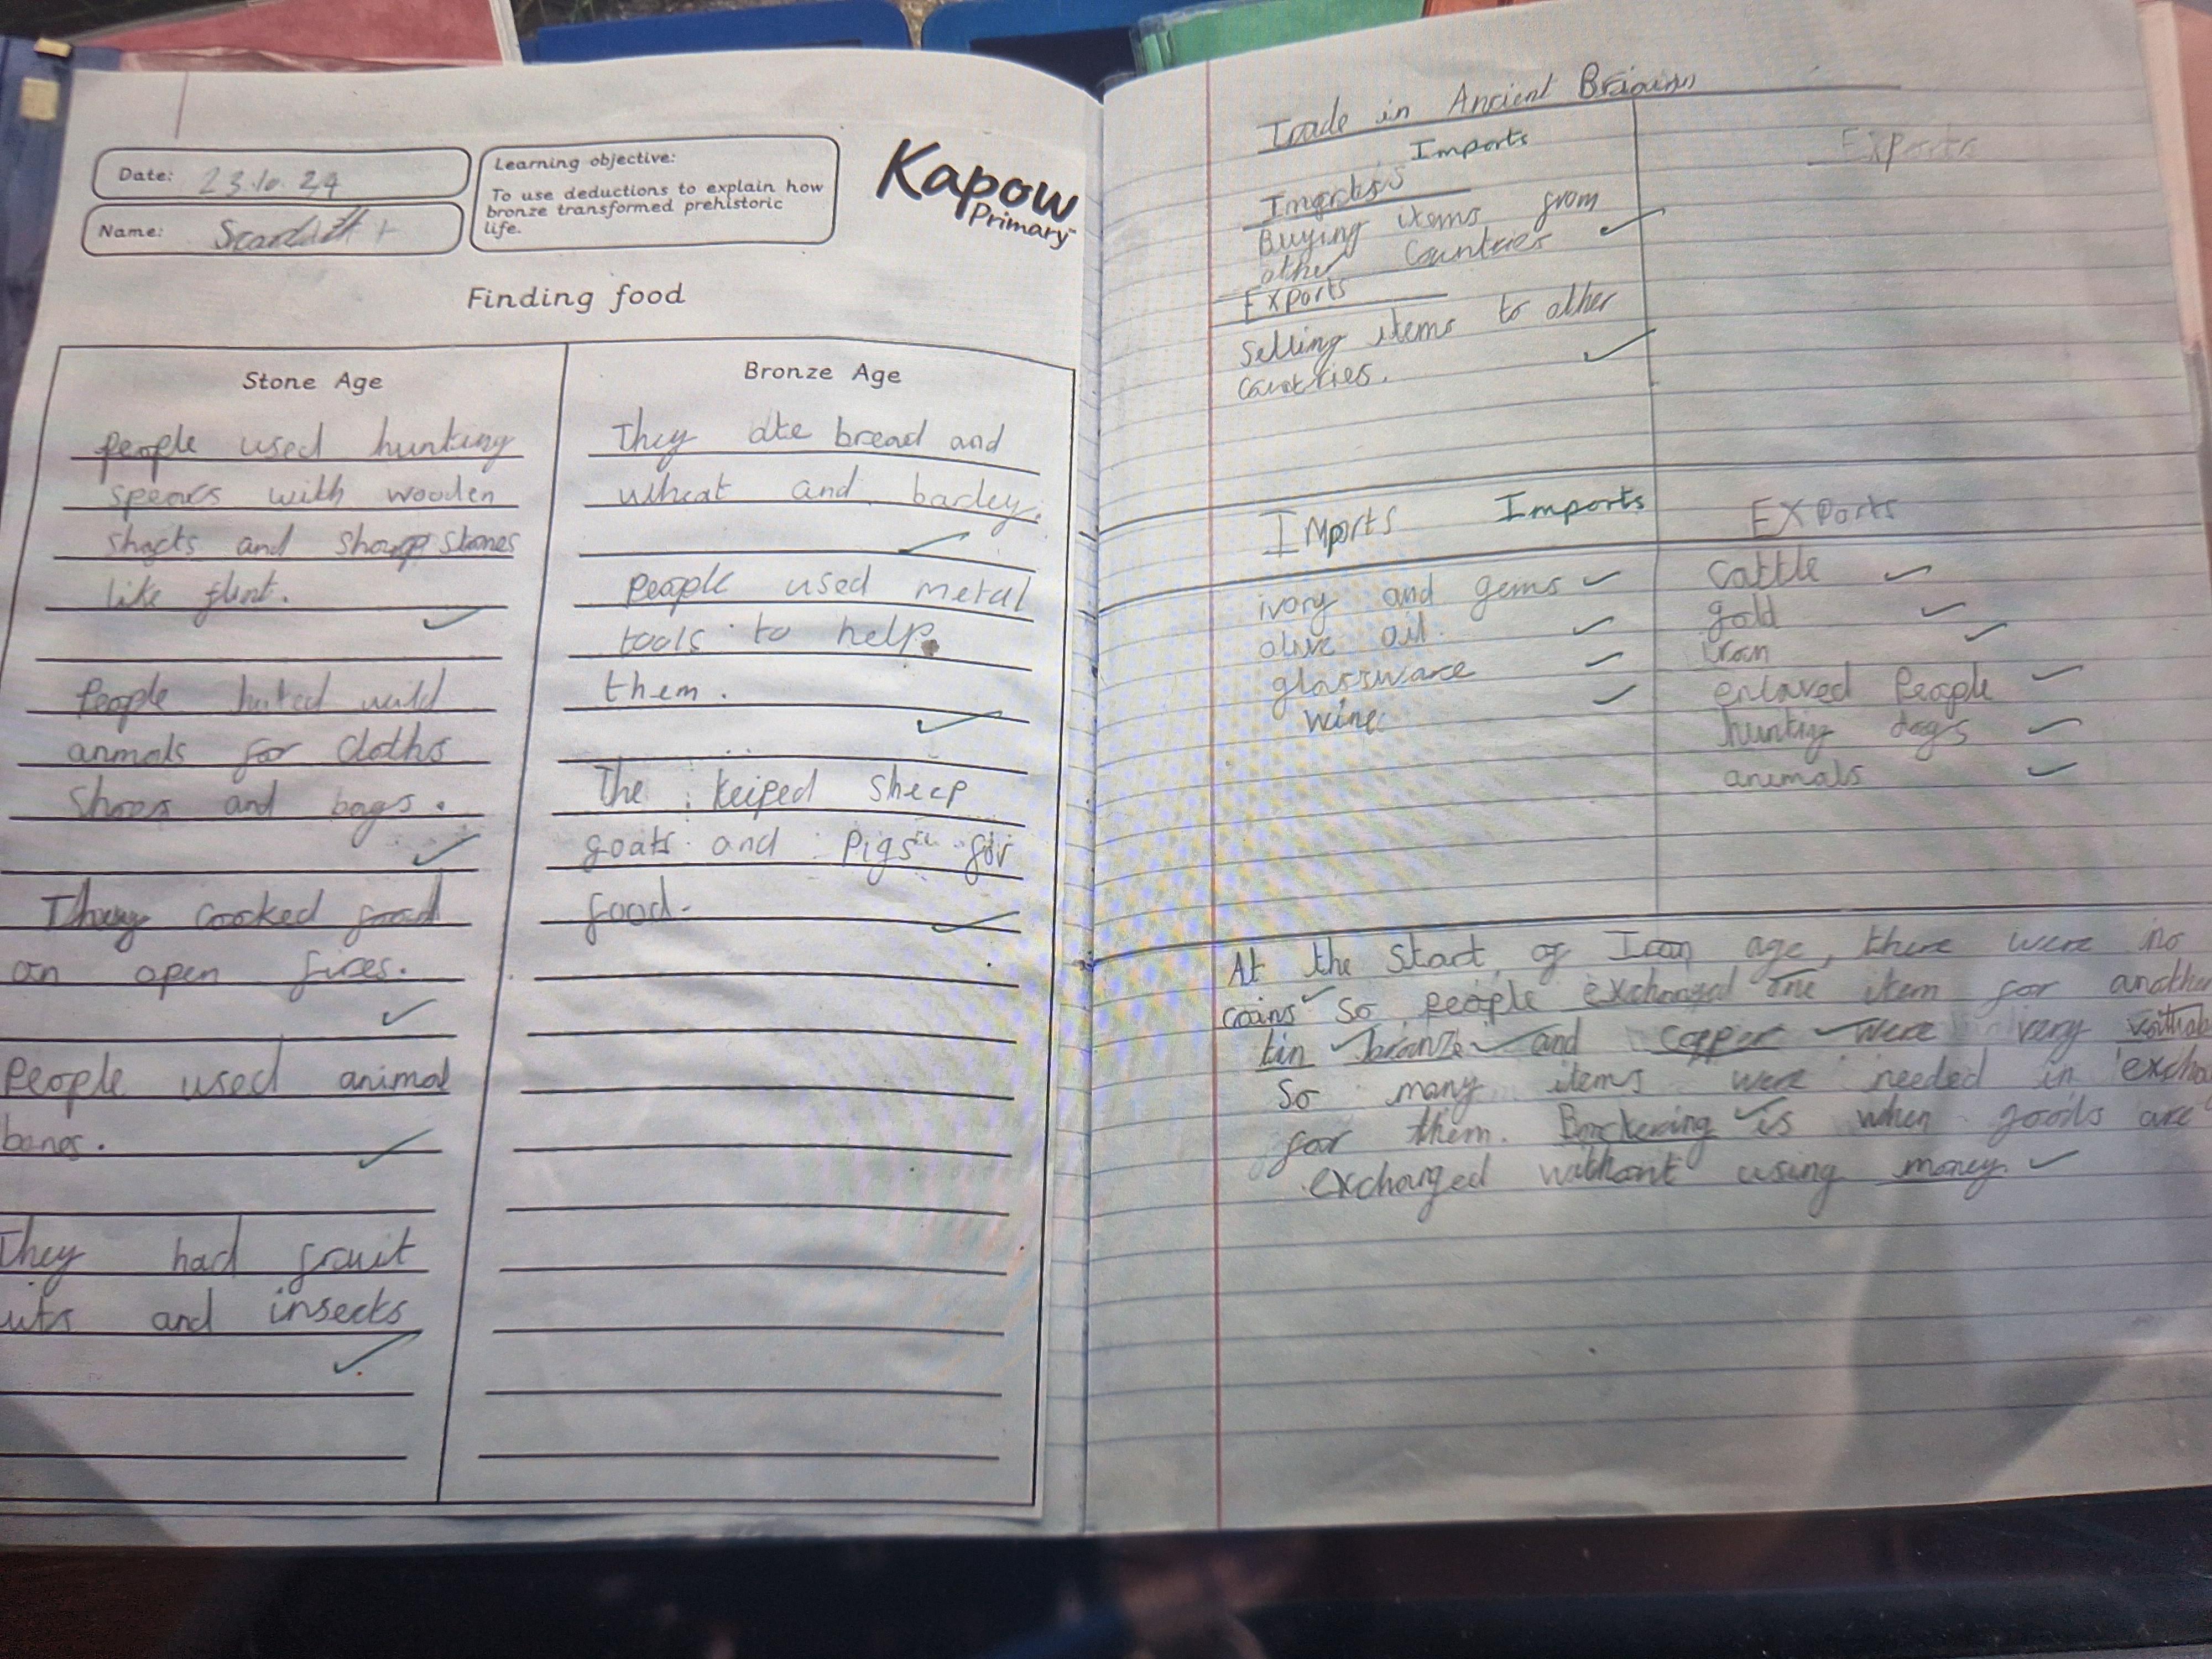 Date: 23.10.24
Name: Scarlett
Learning objective:
To use deductions to explain how
bronze transformed prehistoric
life.
Kapow
Primary
Finding food
Stone Age
people used hunting
spears with wooden
shafts and sharp stones
like flint.
People huted wild
anmals for cloths
shoes and bags.
They cooked food
on open fires.
People used animal
bones.
They had fruit
uts and insects
Bronze Age
They ate bread and
wheat and barley.
people used metal
tools to help
them.
The keiped sheep
goats and pigs for
food.
Trade in Ancient
Imports
Imports
Buying items from
other Countries
Exports
Selling items to other
countries.
Exports
Imports Imports
ivory and gems
olive oil
glassware
wine
Exports
cattle
gold
iron
enlaved People
hunting dogs
animals
At the start of Iron age, there were no
coins so people exchanged one item for another
tin bronze and copper were very
So many items were needed in excha
for them. is when goods are
exchanged without using money.